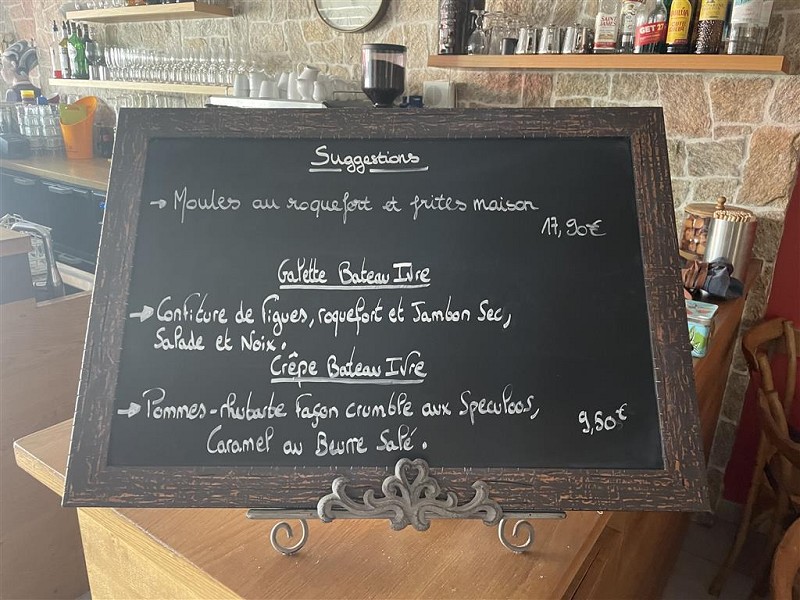 Suggestions
→ Moules au roquefort et frites maison
17,90€
Galette Bateau Ivre
→ Confiture de Figues, roquefort et Jambon Sec,
Salade et Noix.
Crêpe Bateau Ivre
→ Pommes-rhubarbe Façon crumble aux Speculoos,
9,50€
Caramel au Beurre Salé.
GET 27